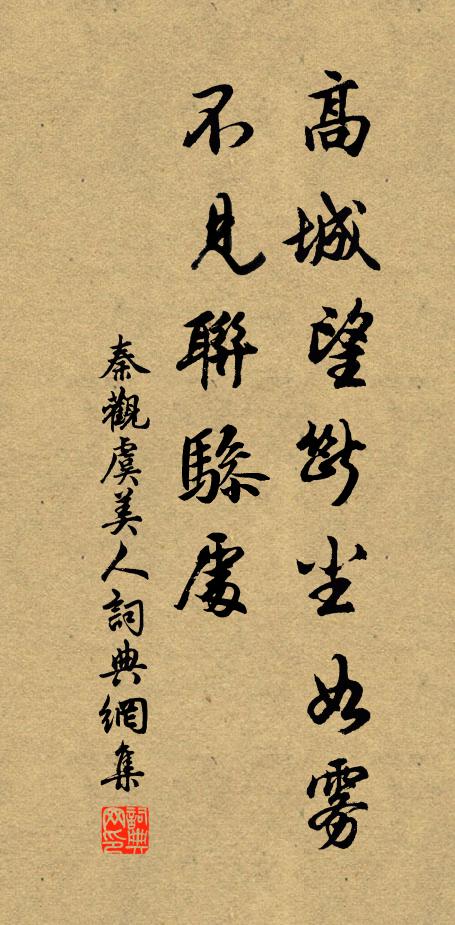 高城望斷塵如霧
不見聯驂處
秦觀虞美人詞典網集
詞典网印